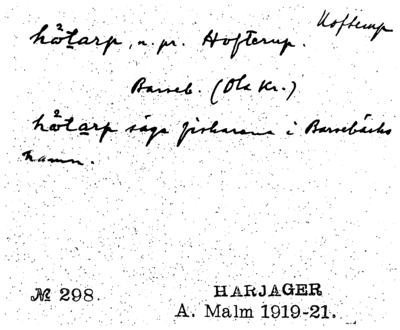 Hofterup
håtarp, n. pr. Hofterup.
Barseb. (Ola Kr.)
håtarp säga fiskarena i Barsebäcks
hamn.
№ 298. HARJAGER
A. Malm 1919-21.